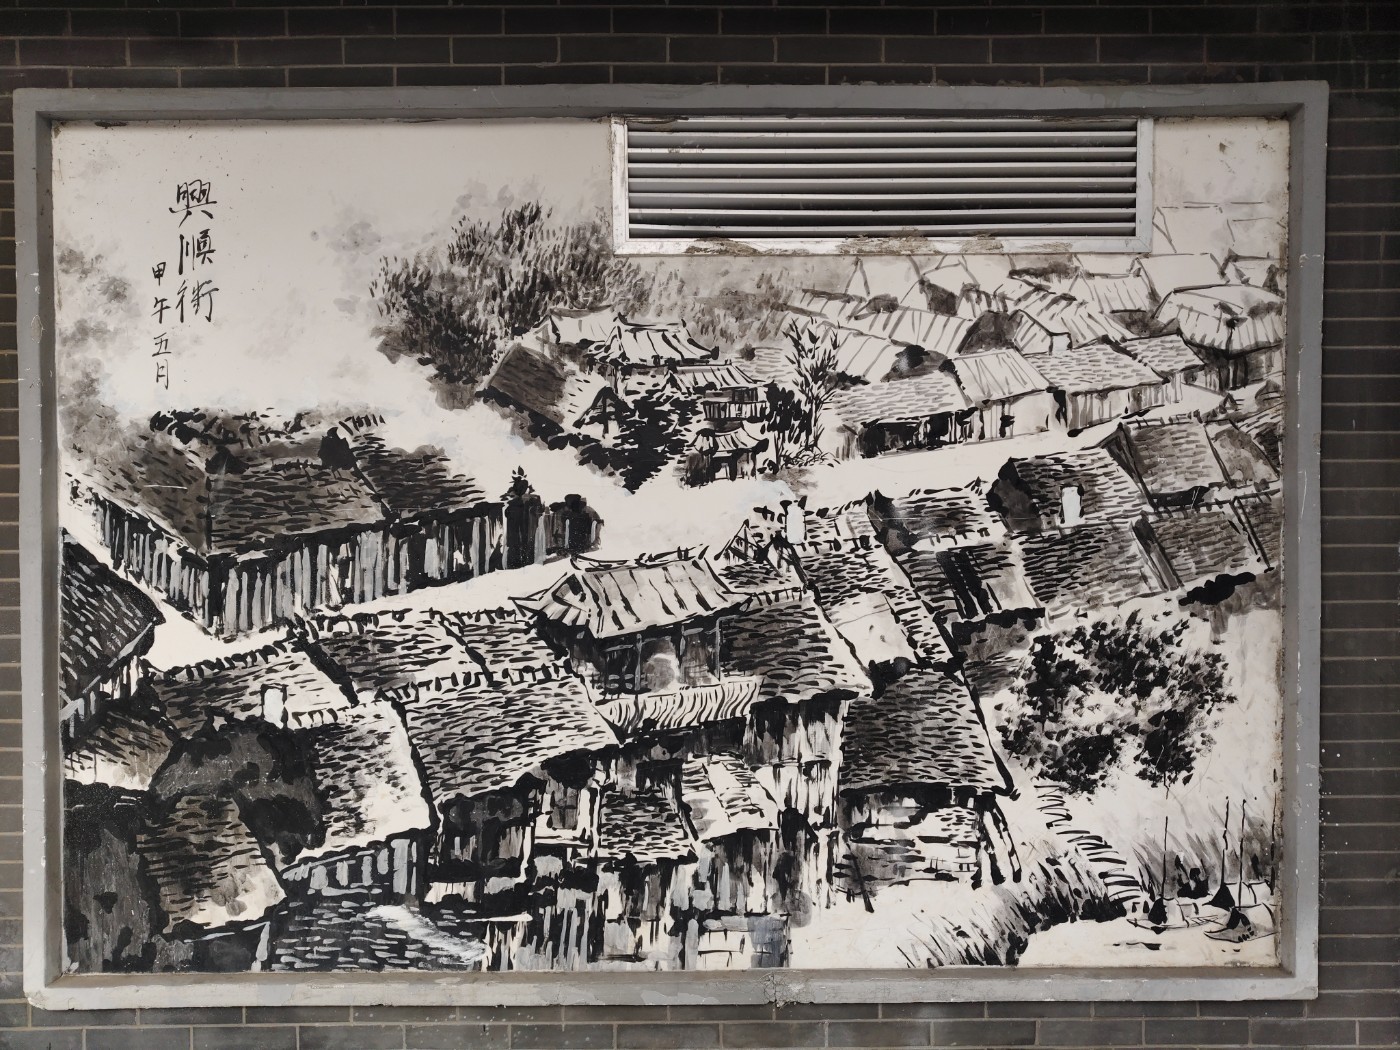 興順街
甲午五月